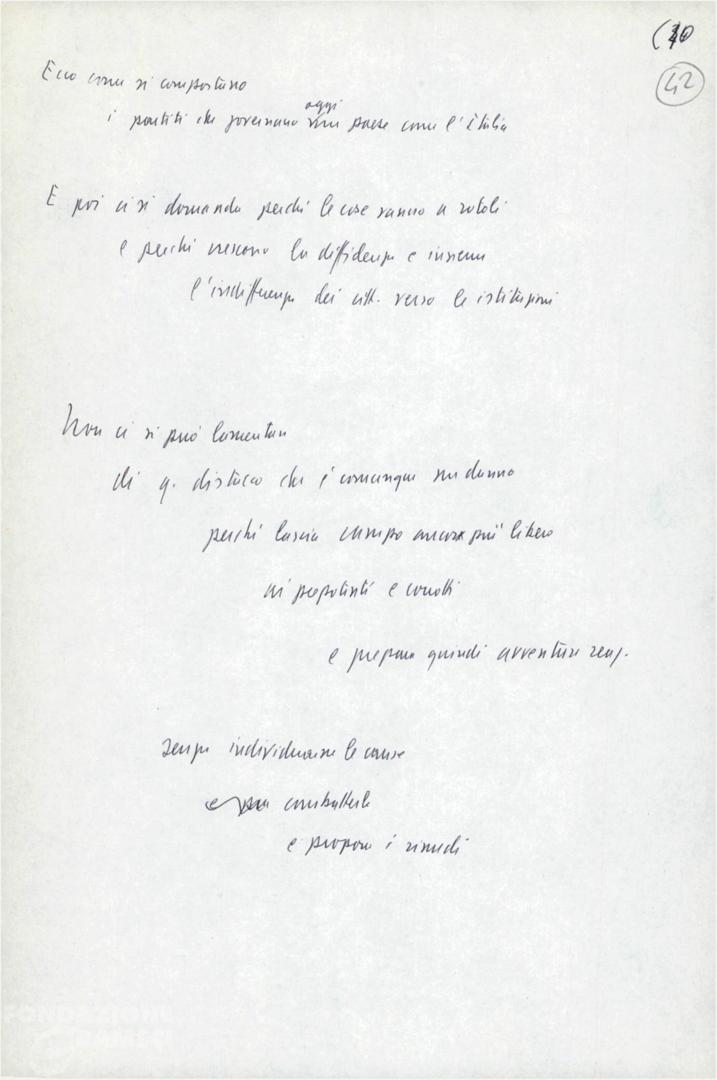 42
Ecco come si comportano
i partiti che governano oggi un paese come l'Italia
E poi ci si domanda perché le cose vanno a rotoli
e perché crescono la diffidenza e insieme
l'indifferenza dei citt. verso le istituzioni
Non ci si può lamentare
di q. distacco che è comunque un danno
perché lascia campo ancora più libero
ai prepotenti e corrotti
e prepara quindi avventure reaz.
senza individuarne le cause
combatterle
e proporre i rimedi
FONDAZIONE